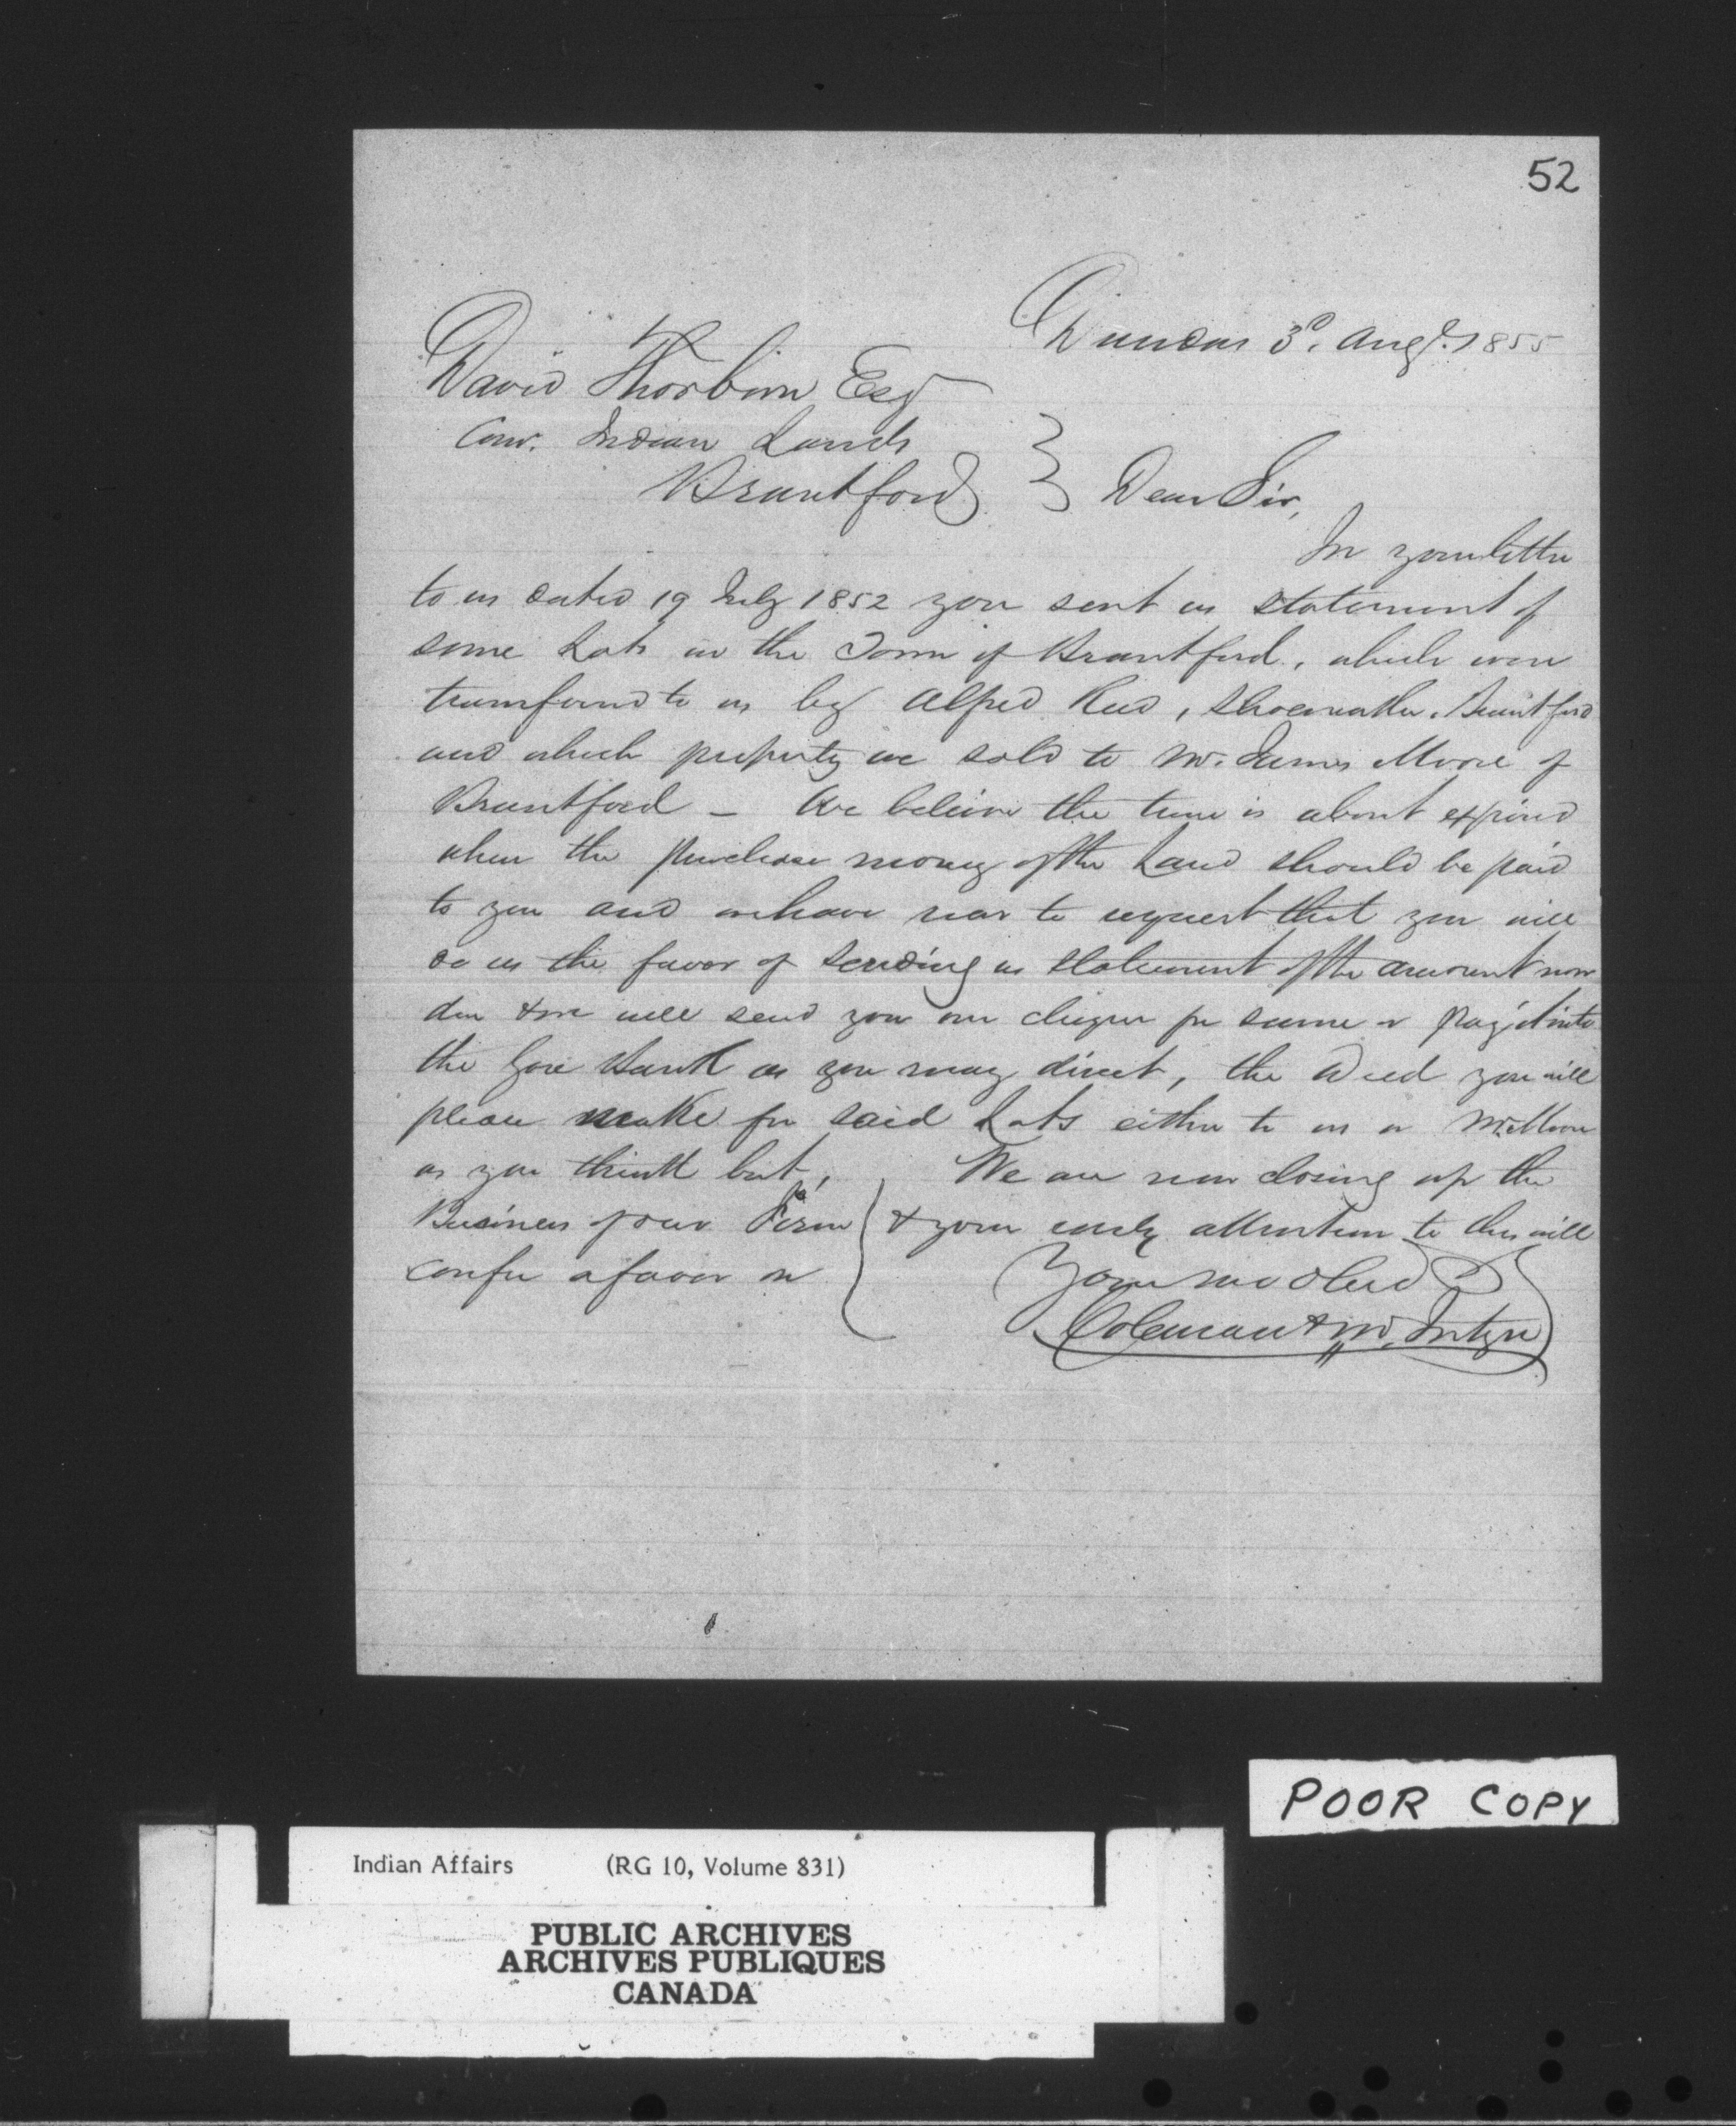 52
Dundas 3d. Augt. 1855
David Thorburn Esq
Com. Indian Lands
Brantford } Dear Sir,
In your letter
to us dated 19 July 1852 you sent us statement of
some Lots in the Town of Brantford, which were
transferred to us by Alfred Reed, Shoemaker, Brantford
and which property we sold to Mr. James Moore of
Brantford — We believe the time is about expired
when the purchase money of the Land should be paid
to you and we have now to request that you will
do us the favor of sending us statement of the amount now
due & we will send you our cheque for same or pay it into
the Gore Bank as you may direct, the Deed you will
please make for said Lots either to us or Mr. Moore
as you think best, We are now closing up the
Business of our Firm & your early attention to this will
confer a favor on
Your mo obed
Coleman & McIntyre
POOR COPY
Indian Affairs (RG 10, Volume 831)
PUBLIC ARCHIVES
ARCHIVES PUBLIQUES
CANADA